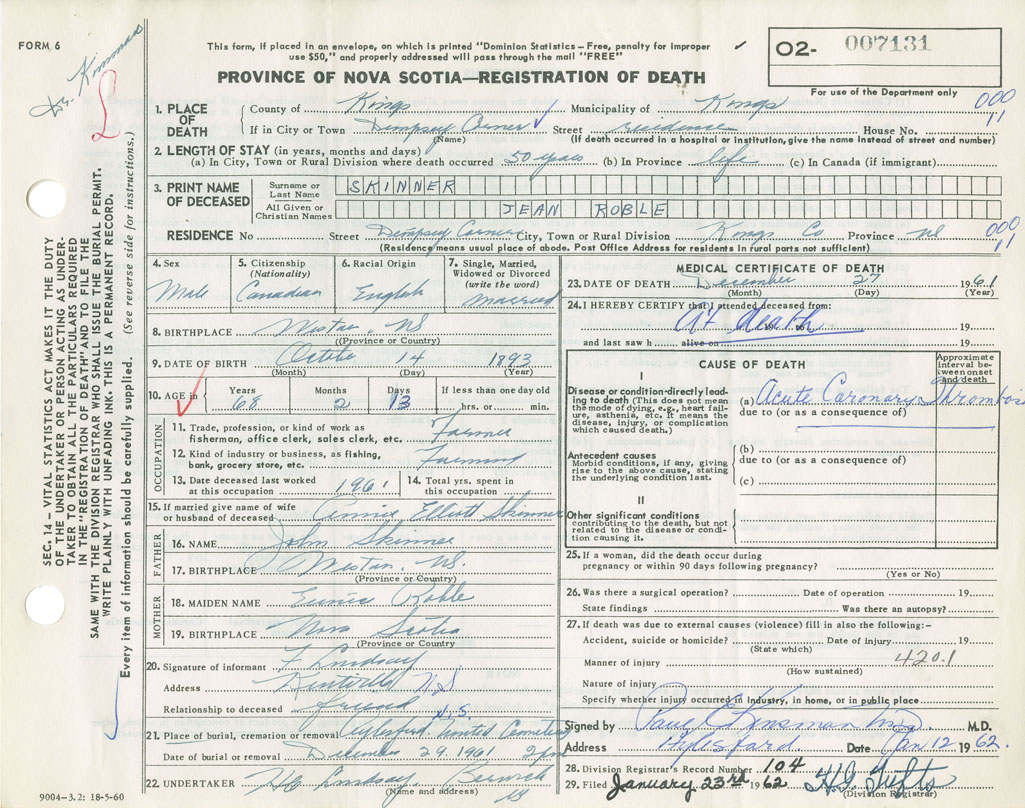 FORM 6
Dr. Kinsman
This form, if placed in an envelope, on which is printed "Dominion Statistics—Free, penalty for improper
use $50," and properly addressed will pass through the mail "FREE"
PROVINCE OF NOVA SCOTIA—REGISTRATION OF DEATH
O2- 007131
For use of the Department only
SEC. 14—VITAL STATISTICS ACT MAKES IT THE DUTY
OF THE UNDERTAKER OR PERSON ACTING AS UNDER-
TAKER TO OBTAIN ALL THE PARTICULARS REQUIRED
IN THE "REGISTRATION OF DEATH" AND TO FILE THE
SAME WITH THE DIVISION REGISTRAR WHO SHALL ISSUE THE BURIAL PERMIT.
WRITE PLAINLY WITH UNFADING INK. THIS IS A PERMANENT RECORD.
Every item of information should be carefully supplied. (See reverse side for instructions.)
1. PLACE OF DEATH
County of Kings Municipality of Kings 000 11
If in City or Town Dempsey Corner Street residence House No.
(Name) (If death occurred in a hospital or institution, give the name instead of street and number)
2. LENGTH OF STAY (in years, months and days)
(a) In City, Town or Rural Division where death occurred 50 years (b) In Province life (c) In Canada (if immigrant)
3. PRINT NAME OF DECEASED
Surname or Last Name SKINNER
All Given or Christian Names JEAN ROBLE
RESIDENCE No Street Dempsey Corner City, Town or Rural Division Kings Co Province NS 000 11
(Residence means usual place of abode. Post Office Address for residents in rural parts not sufficient)
4. Sex Male
5. Citizenship (Nationality) Canadian
6. Racial Origin English
7. Single, Married, Widowed or Divorced (write the word) married
8. BIRTHPLACE Weston, NS
(Province or Country)
9. DATE OF BIRTH October 14 1893
(Month) (Day) (Year)
10. AGE in Years 68 Months 2 Days 13 If less than one day old hrs. or min.
OCCUPATION
11. Trade, profession, or kind of work as
fisherman, office clerk, sales clerk, etc. Farmer
12. Kind of industry or business, as fishing,
bank, grocery store, etc. Farming
13. Date deceased last worked at this occupation 1961
14. Total yrs. spent in this occupation
15. If married give name of wife
or husband of deceased Annie Elliott Skinner
FATHER
16. NAME John Skinner
17. BIRTHPLACE Weston, NS.
(Province or Country)
MOTHER
18. MAIDEN NAME Eunice Roble
19. BIRTHPLACE Nova Scotia
(Province or Country)
20. Signature of informant F Lindsay
Address Kentville NS
Relationship to deceased friend
N.S.
21. Place of burial, cremation or removal Aylesford United Cemetery
Date of burial or removal December 29. 1961 2 pm
22. UNDERTAKER Lindsay Berwick
(Name and address) NS
9004-3.2: 18-5-60
MEDICAL CERTIFICATE OF DEATH
23. DATE OF DEATH December 27 1961
(Month) (Day) (Year)
24. I HEREBY CERTIFY that I attended deceased from:
At death to 19
and last saw h alive on 19
CAUSE OF DEATH
Approximate interval between onset and death
I
Disease or condition directly lead-
ing to death (This does not mean
the mode of dying, e.g., heart fail-
ure, asthenia, etc. It means the
disease, injury, or complication
which caused death.)
(a) Acute Coronary Thrombosis
due to (or as a consequence of)
Antecedent causes
Morbid conditions, if any, giving
rise to the above cause, stating
the underlying condition last.
(b)
due to (or as a consequence of)
(c)
II
Other significant conditions
contributing to the death, but not
related to the disease or condi-
tion causing it.
25. If a woman, did the death occur during
pregnancy or within 90 days following pregnancy?
(Yes or No)
26. Was there a surgical operation? Date of operation 19
State findings Was there an autopsy?
27. If death was due to external causes (violence) fill in also the following:—
Accident, suicide or homicide? Date of injury 19
(State which)
Manner of injury 420.1
(How sustained)
Nature of injury
Specify whether injury occurred in industry, in home, or in public place
Signed by Paul E Kinsman M.D. M.D.
Address Aylesford Date Jan 12 1962.
28. Division Registrar's Record Number 104
29. Filed January 23rd 1962 Tufts
(Division Registrar)